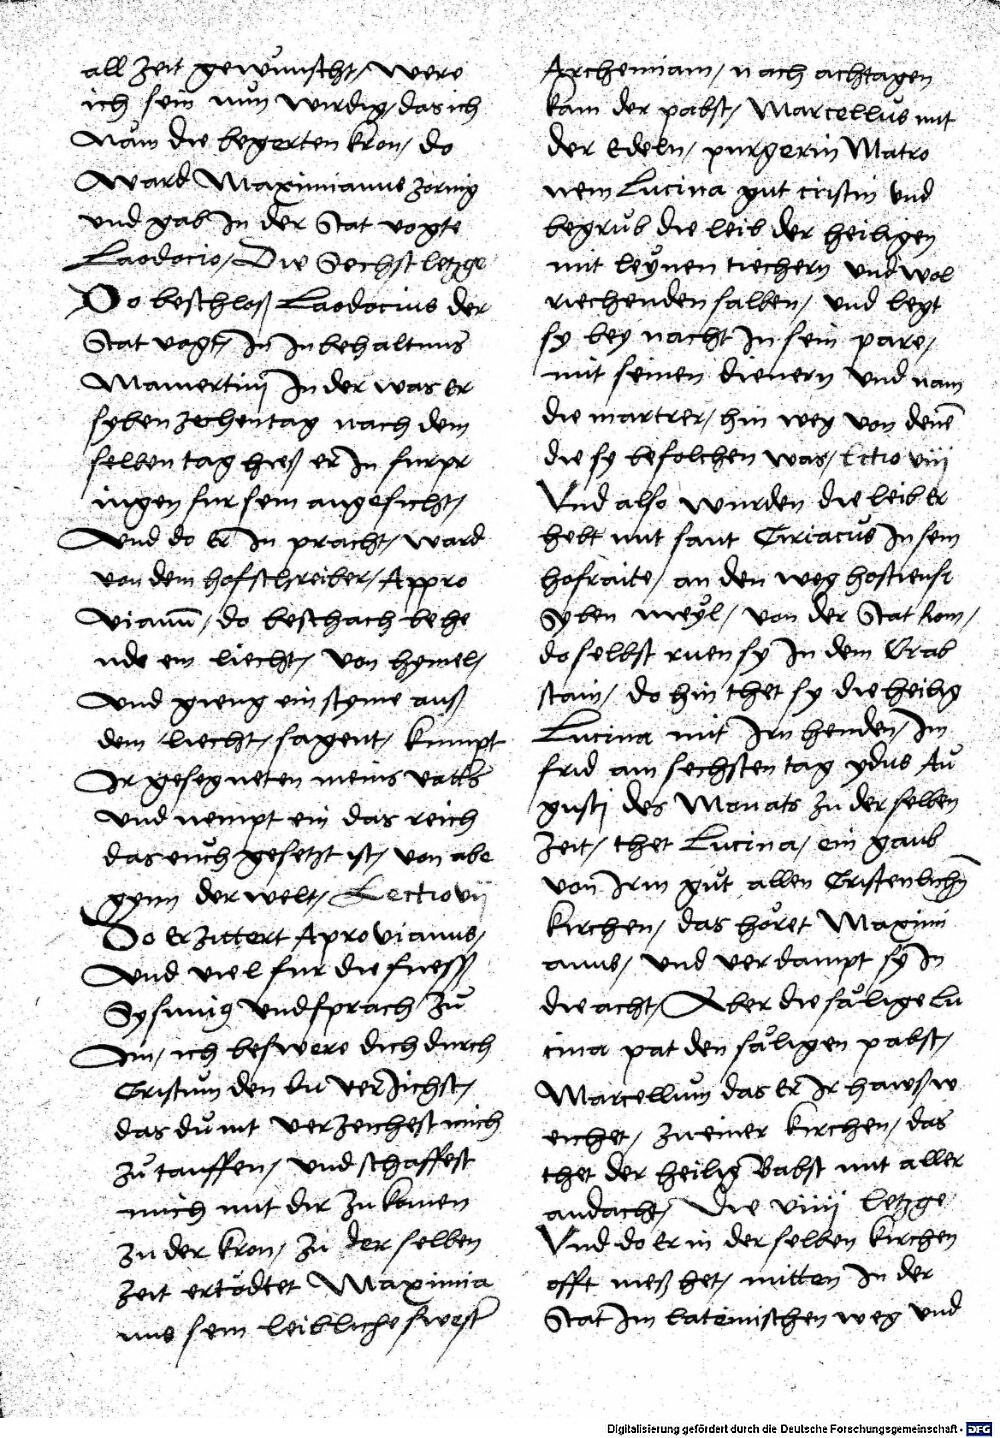 all zeit gewünscht/ were
ich sein nun wirdig/ das ich
Näm die begerten kron/ do
Ward Maximianus zornig
und gab In der Stat vogte
Laodocio/ Die Sechst letzge
Do beschloß Laodocius der
Stat vogt/ In In behaltnus
Mamertinj In der was er
syben zechen tag nach dem
selben tag hieß er In furpr
ingen fur sein angesicht/
Und do Er In pracht/ ward
von dem hofschreiber/ Appro
vianu/ do beschach behe
nde ein liecht/ von hymel/
Und gieng ein styme auß
dem liecht/ sagent/ kumpt
Ir gesegneten meins vatts
Und nempt ein das reich
das euch gesetzt ist/ von abe
gynn der welt/ Lectio vij
Do Erzittert Aprovianus/
Und viel fur die fuess
Sysinnig Und sprach Zů
Im/ ich beswere dich durch
Cristum den du verzichst/
das dů nit verzeichest mich
zů tauffen/ und schaffest
mich mit dir zu komen
zu der kron/ zu der selben
zeit ertödtet Maximia
nus sein leibliche swest
Archemiam/ nach achtagen
kam der pabst/ Marcellus mit
der Edeln/ purgerin Matro
nem Lucina gut cristin und
begrůb die leib der heiligen
mit leynen tiechern und wol
riechenden salben/ und legt
sy bey nacht In sein pare/
mit seinen dienern und nam
die martrer/ hin weg von dene
die sy befolchen was/ Lctio viij
Und also wurden die leib er
hebt mit sant Ciriacus In sein
hofraite/ an den weg hostiensi
Syben meyl/ von der Stat Rom/
do selbst ruen sy In dem Grab
stain/ do hin thet sy die heilig
Lucina mit Irn henden/ In
frid am sechsten tag ydus Au
gustj des Monats zu der selben
zeit/ thet Lucina/ ein gaub
von Irm gůt allen Cristenlichn
kirchen/ das höret Maximi
anus/ und verdampt sy In
die acht/ Aber die sälige Lu
cina pat den säligen pabst/
Marcellum das er Ir hawß w
eichet/ zu einer kirchen/ das
thet der heilig Babst mit aller
andacht/ Die viiij letzge
Und do Er in der selben kirchen
offt meß het/ mitten In der
Stat Im lateinischen weg und
Digitalisierung gefördert durch die Deutsche Forschungsgemeinschaft - DFG